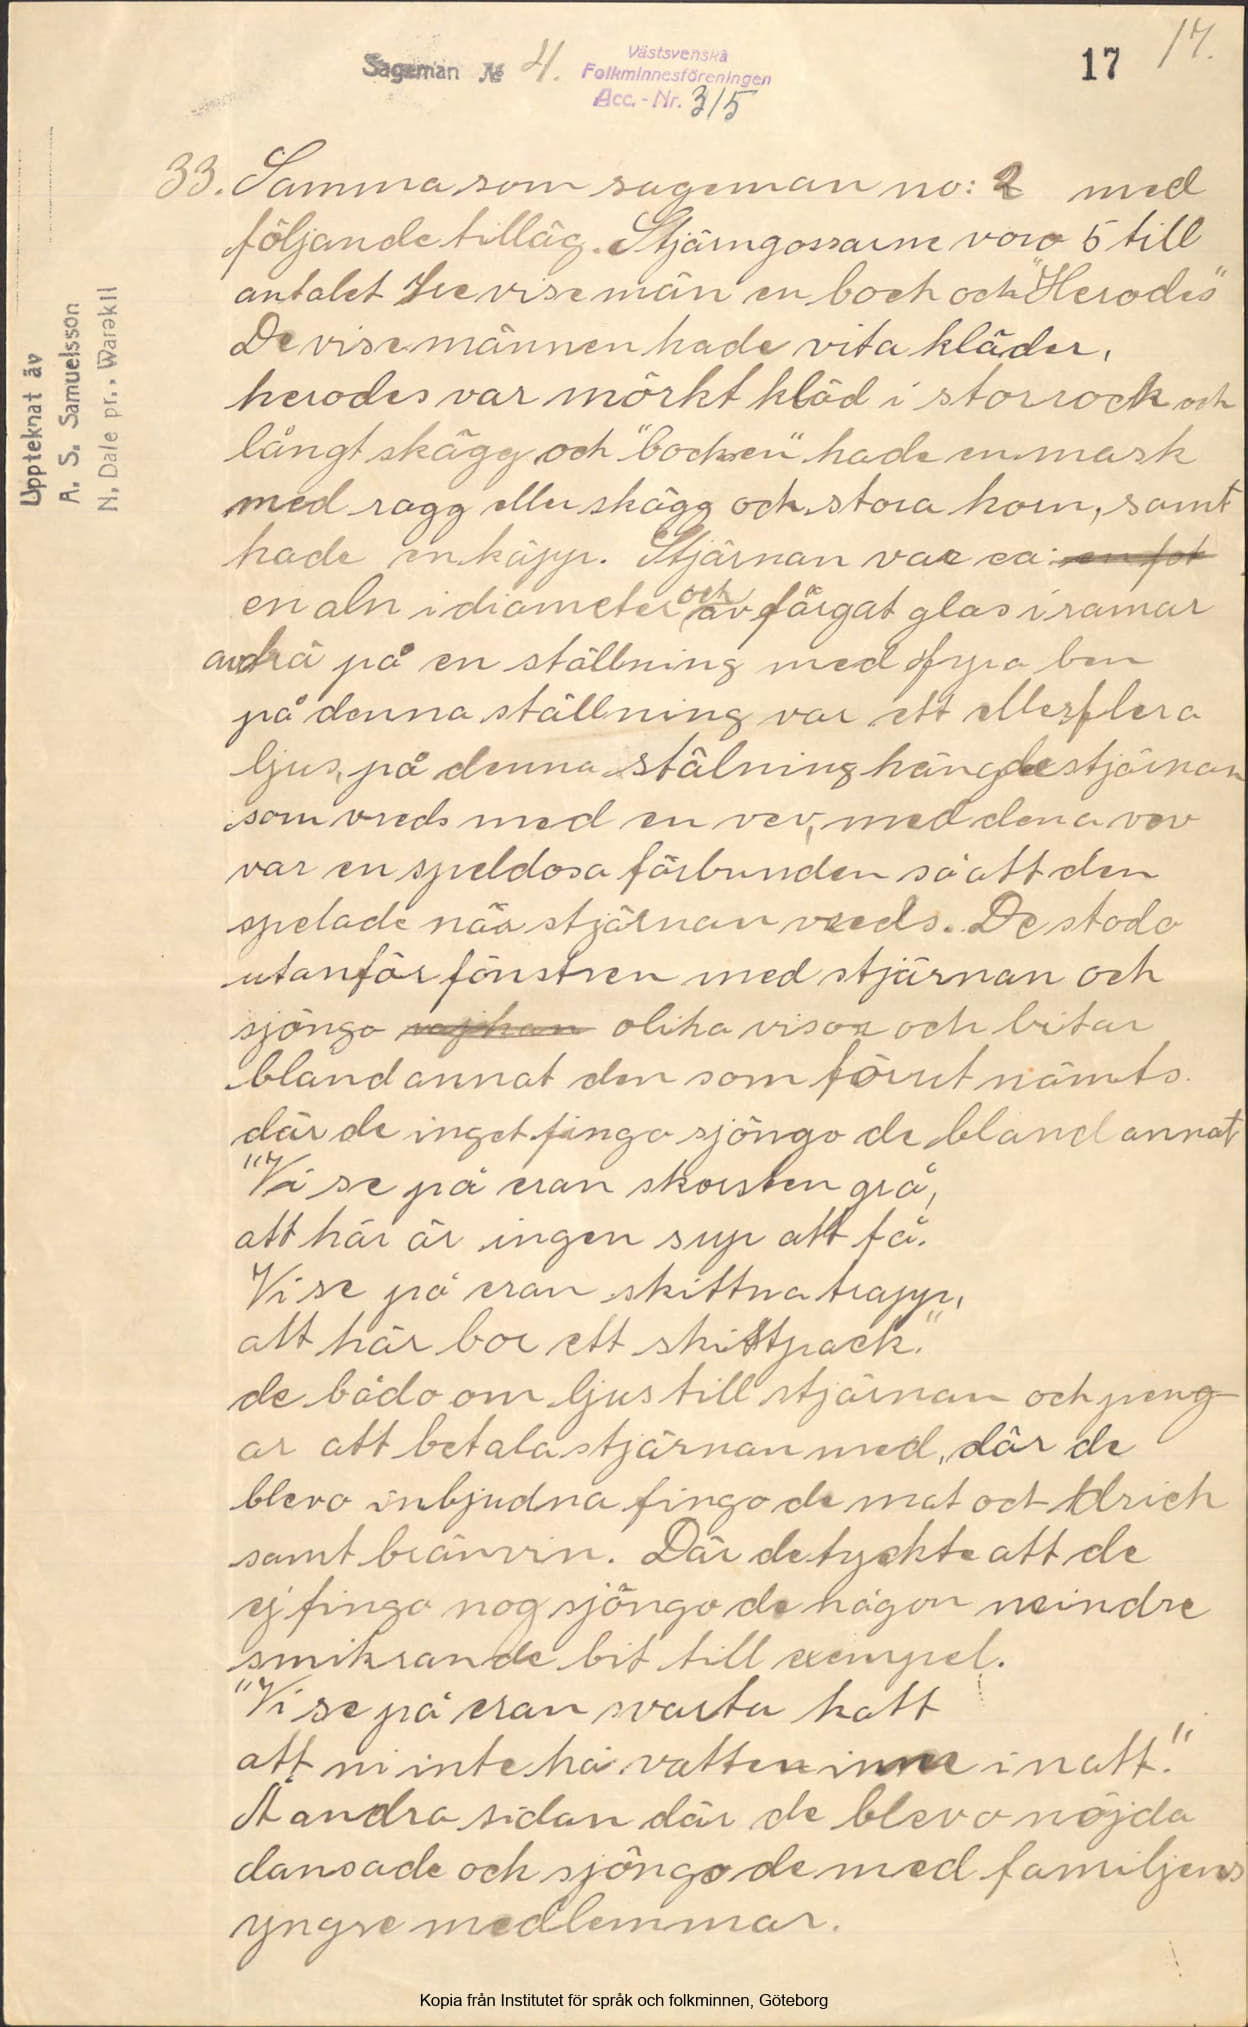 17.
17
Sageman № 4.
Västsvenska
Folkminnesföreningen
Acc.-Nr. 315
Uppteknat av
A. S. Samuelsson
N. Dale pr. Warekil
33. Samma som sageman no: 2 med
följande tilläg. Stjärngossarne voro 5 till
antalet tre vise män en bock och "Herodes"
De vise männen hade vita kläder,
herodes var mörkt kläd i storrock och
långt skägg och "bocken" hade en mask
med ragg eller skägg och stora horn, samt
hade en käpp. Stjärnan var ca: en fot
en aln i diameter och av färgat glas i ramar
av trä på en ställning med fyra ben
på denna ställning var ett eller flera
ljus, på denna stälning hängde stjärnan
som vreds med en vev, med dena vev
var en speldosa förbunden så att den
spelade när stjärnan vreds. De stodo
utanför fönstren med stjärnan och
sjöngo olika visor och bitar
bland annat den som förut nämts.
där de inget fingo sjöngo de bland annat
"Vi se på eran skorsten grå,
att här är ingen sup att få.
Vi se på eran skittna trapp,
att här bor ett skittpack."
de bådo om ljus till stjärnan och peng-
ar att betala stjärnan med, där de
blevo inbjudna fingo de mat och drick
samt bränvin. Där de tyckte att de
ej fingo nog sjöngo de någon mindre
smikrande bit till exempel.
"Vi se på eran svarta katt
att ni inte ha vatten inne i natt."
Å andra sidan där de blevo nöjda
dansade och sjöngo de med familjens
yngre medlemmar.
Kopia från Institutet för språk och folkminnen, Göteborg